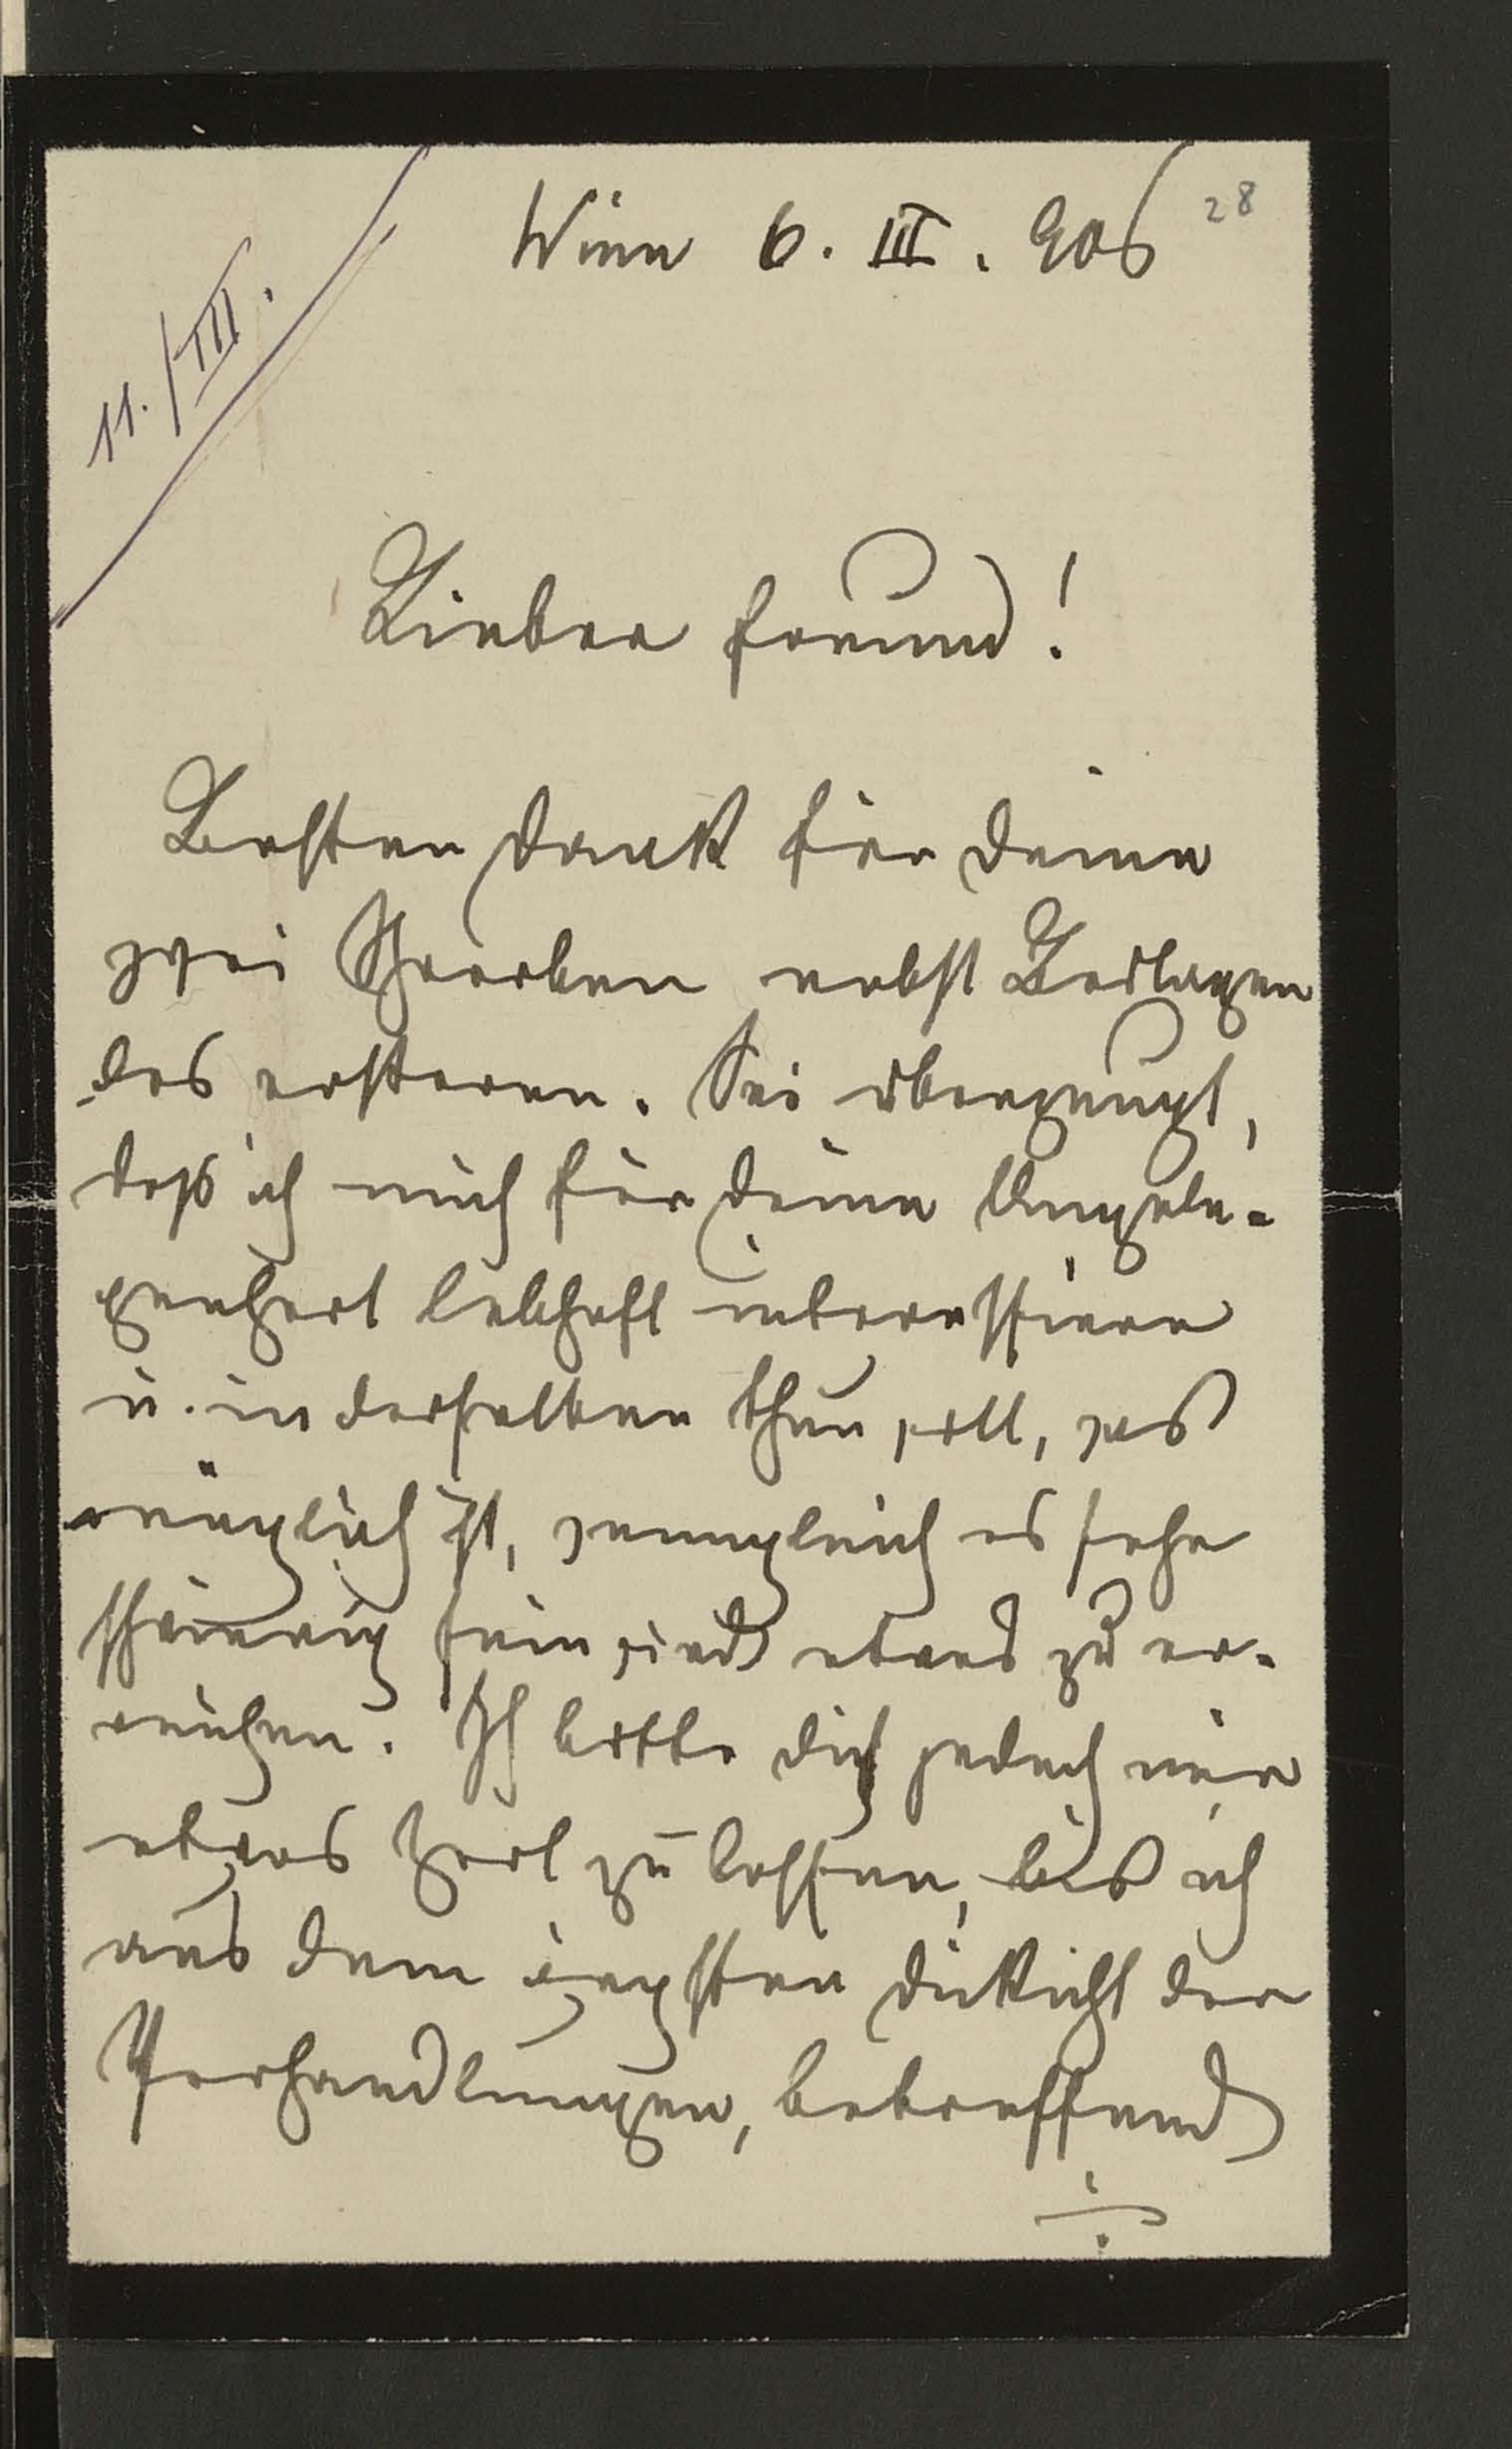 28
Wien 6. III. 906
11./III.
Lieber Freund!
Besten Dank für Deine
zwei Schreiben nebst Beilagen
des ersteren. Sei überzeugt,
daß ich mich für Deine Angele-
genheit lebhaft interessiere
u. in derselben thun will, was
möglich ist, wenngleich es sehr
schwierig sein wird etwas zu er-
reichen. Ich bitte Dich jedoch mir
etwas Zeit zu lassen, bis ich
aus dem ärgsten Dickicht der
Verhandlungen, betreffend